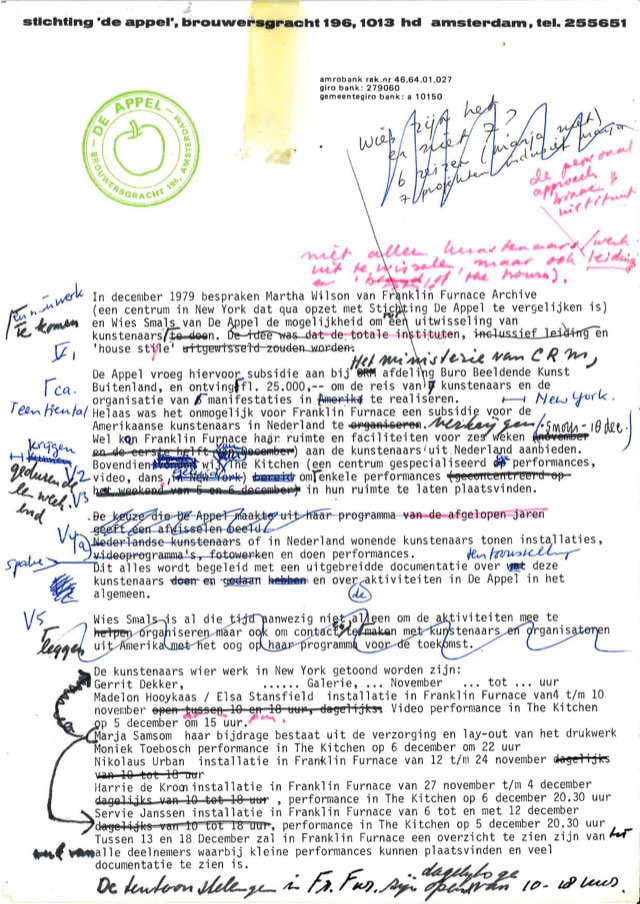 stichting 'de appel', brouwersgracht 196, 1013 hd amsterdam, tel. 255651
amrobank rek.nr 46.64.01.027
giro bank: 279060
gemeentegiro bank: a 10150
DE APPEL
BROUWERSGRACHT 196, AMSTERDAM
wies zijn het
er niet 7?
6 reizen (marja niet)
7 projekten inclusief marja
de personal
approach
instituut
niet alleen kunstenaars/werk
uit te wisselen maar ook leiding
en
In december 1979 bespraken Martha Wilson van Franklin Furnace Archive
(een centrum in New York dat qua opzet met Stichting De Appel te vergelijken is)
te komen
en Wies Smals van De Appel de mogelijkheid om een uitwisseling van
kunstenaars te doen. De idee was dat de totale instituten, inclusief leiding en
V1
'house style' uitgewisseld zouden worden.
Het ministerie van CRM,
De Appel vroeg hiervoor subsidie aan bij CRM afdeling Buro Beeldende Kunst
ca.
Buitenland, en ontving fl. 25.000,-- om de reis van 7 kunstenaars en de
organisatie van manifestaties in Amerika te realiseren.
New York.
Helaas was het onmogelijk voor Franklin Furnace een subsidie voor de
Amerikaanse kunstenaars in Nederland te organiseren. verkrijgen
Wel kon Franklin Furnace haar ruimte en faciliteiten voor zes weken (november
krijgen
en de eerste helft van december) aan de kunstenaars uit Nederland aanbieden.
V2
Bovendien wil The Kitchen (een centrum gespecialiseerd op performances,
gedurende
video, dans, in New York) bereid om enkele performances (geconcentreerd op
V3
het weekend van 5 en 6 december) in hun ruimte te laten plaatsvinden.
De keuze die De Appel maakte uit haar programma van de afgelopen jaren
geeft een afwisselen beeld.
V4
Nederlandse kunstenaars of in Nederland wonende kunstenaars tonen installaties,
videoprogramma's, fotowerken en doen performances.
tentoonstelling
spatie
Dit alles wordt begeleid met een uitgebreidde documentatie over wat deze
kunstenaars doen en gedaan hebben en over aktiviteiten in De Appel in het
de
algemeen.
V5
Wies Smals is al die tijd aanwezig niet alleen om de aktiviteiten mee te
helpen organiseren maar ook om contact te maken met kunstenaars en organisatoren
leggen
uit Amerika met het oog op haar programma voor de toekomst.
De kunstenaars wier werk in New York getoond worden zijn:
Gerrit Dekker, ...... Galerie, ... November ... tot ... uur
Madelon Hooykaas / Elsa Stansfield installatie in Franklin Furnace van4 t/m 10
november open tussen 10 en 18 uur, dagelijks. Video performance in The Kitchen
op 5 december om 15 uur.
Marja Samsom haar bijdrage bestaat uit de verzorging en lay-out van het drukwerk
Moniek Toebosch performance in The Kitchen op 6 december om 22 uur
Nikolaus Urban installatie in Franklin Furnace van 12 t/m 24 november dagelijks
van 10 tot 18 uur
Harrie de Kroon installatie in Franklin Furnace van 27 november t/m 4 december
dagelijks van 10 tot 18 uur , performance in The Kitchen op 6 december 20.30 uur
Servie Janssen installatie in Franklin Furnace van 6 tot en met 12 december
dagelijks van 10 tot 18 uur, performance in The Kitchen op 5 december 20.30 uur
Tussen 13 en 18 December zal in Franklin Furnace een overzicht te zien zijn van het
werk van alle deelnemers waarbij kleine performances kunnen plaatsvinden en veel
documentatie te zien is.
De tentoonstelengen in Fr. Fur. zijn dagelijks
open van 10-18 uur.